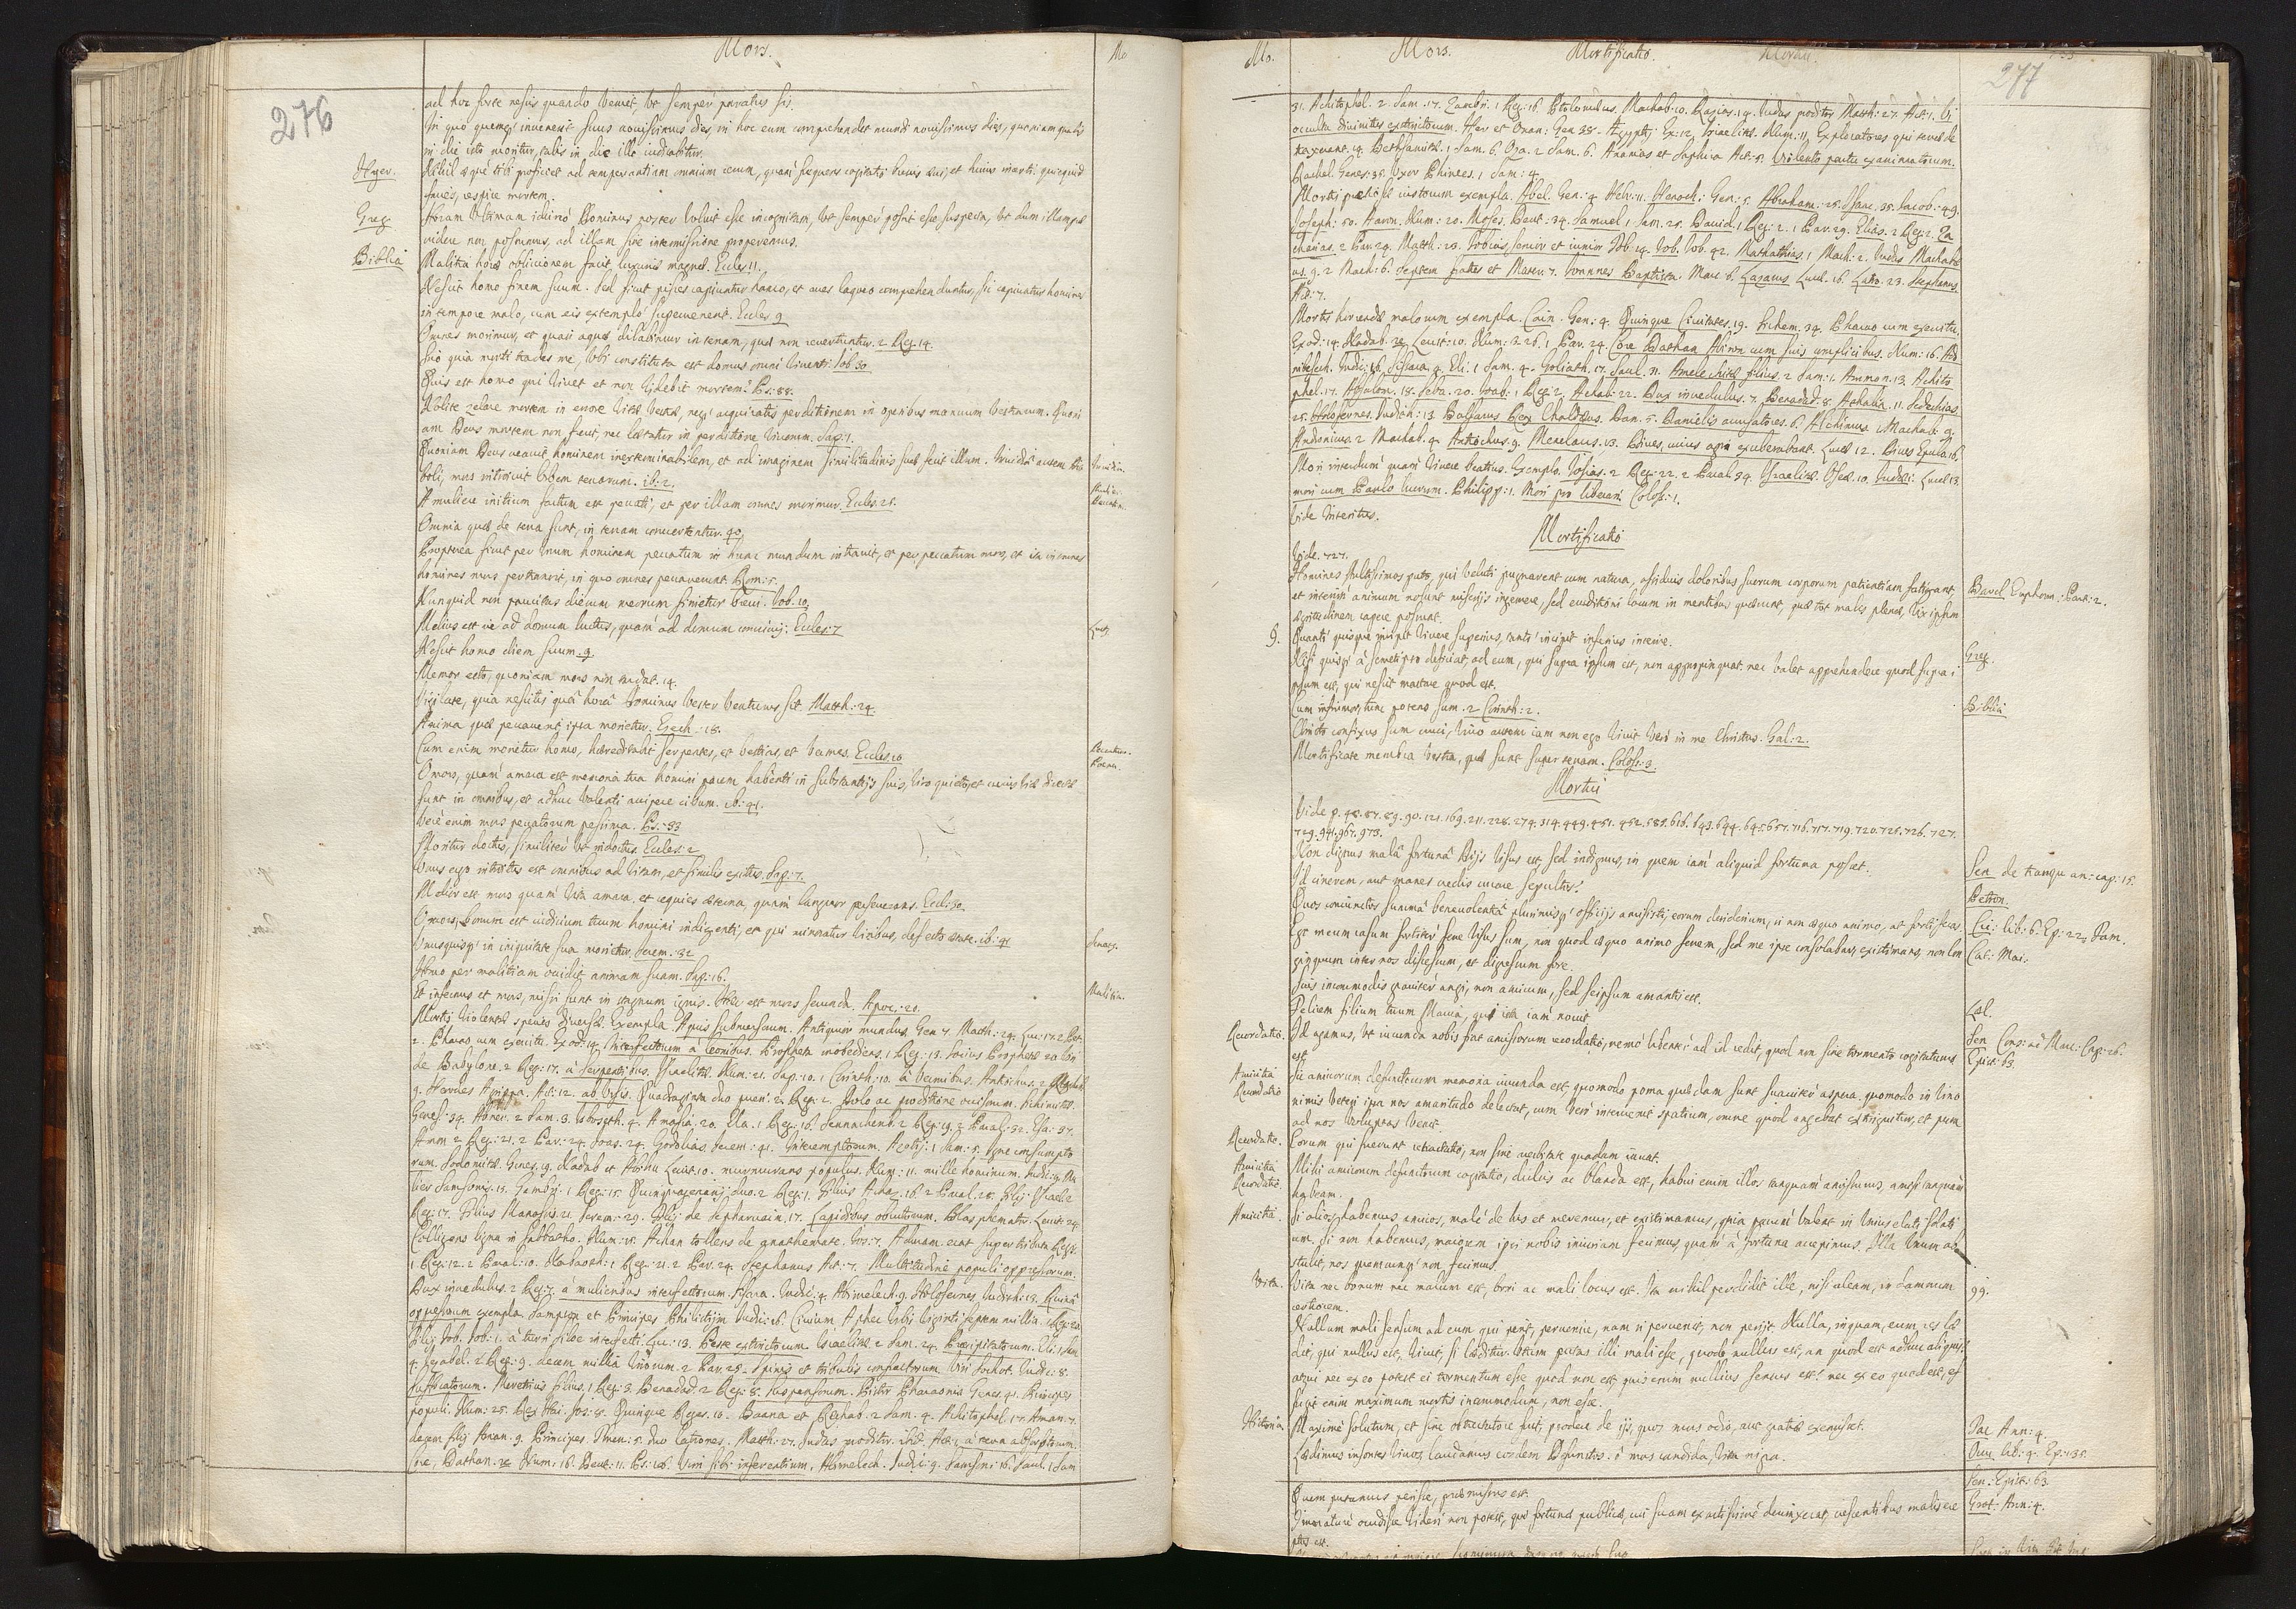 Mors.
Mo
276
ad hoc forte nescis quando veniet, ut semper paratus sis.
In quo quemque invenerit suus novissimus dies, in hoc eum comprehendet mundi novissimus dies, quoniam qualis
in die isto moritur, talis in die illo iudicabitur.
Hyer.
Nihil aequè tibi proficiet ad temperantiam omnium rerum, quàm frequens cogitatio brevis aevi, et huius incerti. quicquid
facies, respice mortem.
Greg.
Horam ultimam idcircò Dominus noster voluit esse incognitam, ut semper possit esse suspecta, ut dum illam prae
videre non possumus, ad illam sine intermissione properemus.
Biblia
Malitia horae oblivionem facit luxuriae magnae. Eccles. 11.
Nescit homo finem suum. Sed sicut pisces capiuntur hamo, et aves laqueo comprehenduntur, sic capiuntur homines
in tempore malo, cum eis extemplò supervenerit. Eccles. 9
Omnes morimur, et quasi aquae dilabimur in terram, quae non revertuntur. 2 Reg. 14.
Scio quia morti trades me, ubi constituta est domus omni viventi. Iob. 30
Quis est homo qui vivet et non videbit mortem? Ps: 88.
Nolite zelare mortem in errore vitae vestrae, neque acquiratis perditionem in operibus manuum vestrarum. Quoni
am Deus mortem non fecit, nec laetatur in perditione vivorum. Sap: 1.
Quoniam Deus creavit hominem inexterminabilem, et ad imaginem similitudinis suae fecit illum. Invidia autem dia
Invidia.
boli, mors introivit orbem terrarum. ib: 2.
A muliere initium factum est peccati, et per illam omnes morimur. Eccles. 25.
Mulier.
Peccatu.
Omnia quae de terra sunt, in terram convertentur. 40.
Propterea sicut per unum hominem peccatum in hunc mundum intravit, et per peccatum mors, et ita in omnes
homines mors pertransiit, in quo omnes peccaverunt. Rom: 5.
Nunquid non paucitas dierum meorum finietur brevi. Iob. 10.
Melius est ire ad domum luctus, quàm ad domum convivij. Eccles: 7
Luct.
Nescit homo diem suum. 9.
Memor esto, quoniam mors non tardat. 14.
Vigilate, quia nescitis quâ horâ Dominus vester venturus sit. Matth: 24.
Anima quae peccaverit ipsa morietur. Ezech: 18.
Cum enim morietur homo, haereditabit serpentes, et bestias, et vermes. Eccles. 10
O mors, quàm amara est memoria tua homini pacem habenti in substantijs suis, viro quieto, et cuius viae directae
sunt in omnibus, et adhuc valenti accipere cibum. ib: 41.
Verè enim mors peccatorum pessima. Ps: 33
Moritur doctus, similiter ut indoctus. Eccles: 2
Unus ergo introitus est omnibus ad vitam, et similis exitus. Sap: 7.
Melior est mors quàm vita amara, et requies aeterna, quàm languor perseverans. Eccl: 30.
O mors, bonum est iudicium tuum homini indigenti, et qui minoratur viribus, defecto aetate. ib: 41
Senect.
Unusquisque in iniquitate sua morietur. Ierem: 31
Homo per malitiam occidit animam suam. Sap: 16.
Malitia.
Et infernus et mors, missi sunt in stagnum ignis. Haec est mors secunda. Apoc: 20.
Mortis violentae species diversae. Exempla. Aquis submersorum. Antiquior mundus Gen 7. Matth: 24. Luc: 17. 2 Pet.
2. Pharao cum exercitu. Exod: 14. Interfectorum à leonibus. Propheta inobediens. 1 Reg: 13. Socius Prophetae 20. Viri
de Babylone. 2 Reg: 17. à serpentibus. Israelitae. Num: 21. Sap. 10. 1 Corinth: 10. à vermibus. Antiochus. 2 Machab.
9. Herodes Agrippa. Act: 12. ab ursis. Quadraginta duo pueri. 2 Reg: 2. Dolo ac proditione occisorum. Sichimitae.
Genes: 34. Abner. 2 Sam. 3. Isboseth. 4. Amasa. 20. Ela. 1 Reg: 16. Sennacherib. 2 Reg: 19. 2 Paral: 32. Esa: 37.
Amon 2 Reg: 21. 2 Par: 24. Joas. 24. Godolias. Ierem: 41. Interemptorum. Azotij. 1 Sam: 5. Igne consumpto
rum. Sodomitae. Genes. 19. Nadab et Abihu Levit. 10. murmurans populus. Num: 11. mille hominum. Iudic: 9. Mu
lier Samsonis. 15. Zambri. 1 Reg: 15. Quinquagenarij duo. 2 Reg: 1. Filius Achaz. 16. 2 Paral. 28. Filij Israel 2
Reg: 17. Filius Manassis. 21. Ierem: 29. Filij de Sepharvaim. 17. Lapidibus obrutorum. Blasphemator. Levit. 24
Colligens ligna in Sabbatho. Num: 15. Achan tollens de anathemate. Ios: 7. Aduram erat super tributa Regis.
1 Reg: 12. 2 Paral: 10. Naboth: 1 Reg: 21. 2 Par. 24. Stephanus Act: 7. Multitudine populi oppressorum.
Dux incredulus. 2 Reg: 7. à mulieribus interfectorum. Sisara. Iudic: 4. Abimelech. 9. Holofernes Iudith: 13. Ruinâ
oppressorum exempla. Sampson et Principes Philistijm Iudic: 16. Civium Aphec urbis viginti septem millia. 1 Reg: 20
Filij Iob. Iob: 1. à turri Siloe interfecti. Luc: 13. Peste extinctorum. Israelitae. 2 Sam. 24. Praecipitatorum. Eli. 1 Sam
4. Iezabel. 2 Reg: 9. decem millia virorum. 2 Par. 25. Spinis et tribulis confectorum. Viri Socoth. Iudic: 8.
Suffocatorum. Meretricis filius. 1 Reg: 3. Benadad. 2 Reg: 8. Suspensorum. Pistor Pharaonis Genes. 41. Principes
populi. Num: 25. Rex Hai. Jos: 8. Quinque Reges. 10. Baana et Rechab. 2 Sam. 4. Achitophel. 17. Aman. 7.
decem filij Aman. 9. Principes. Thren: 5. duo latrones. Matth: 27. Iudas proditor. ibid. Act: 1. à terra absorptorum.
Core, Dathan. Num: 16. Deut: 11. Ps: 106. Vim sibi inferentium. Abimelech. Iudic: 9. Samson: 16. Saul. 1 Sam
Mo.
Mors.
Mortificatio.
Mortui.
277
31. Achitophel. 2 Sam. 17. Zambri. 1 Reg: 16. Ptolomeus. Machab. 10. Razias. 14. Iudas proditor Matth: 27. Act: 1. Vi
occulta divinitus extinctorum. Her et Onan: Gen 38. Aegyptij. Ex: 12. Israelitae. Num: 11. Exploratores qui terrae de
traxerant. 14. Bethsamitae. 1 Sam. 6. Oza. 2 Sam. 6. Ananias et Saphira Act: 5. Violento partu exanimatorum.
Rachel. Genes: 35. Uxor Phinees. 1 Sam: 4.
Mortis pretiosae iustorum exempla. Abel. Gen: 4. Hebr: 11. Henoch: Gen: 5. Abraham. 25. Isaac. 35. Iacob. 49.
Joseph. 50. Aaron. Num: 20. Moses. Deut: 34. Samuel 1 Sam. 25. David. 1 Reg: 2. 1 Par. 29. Elias. 2 Reg: 2. Za
charias. 2 Par. 24. Matth: 23. Tobias, senior et iunior Tob. 14. Iob. Iob. 42. Mathathias. 1 Mach: 2. Iudas Machabae
us. 9. 2 Mach: 6. Septem fratres et Mater: 7. Ioannes Baptista. Marc 6. Lazarus. Luc. 16. Latro. 23. Stephanus.
Act: 7.
Mortis horrendae malorum exempla. Cain. Gen: 4. Quinque Civitates. 19. Sichem. 34. Pharao cum exercitu.
Exod: 14. Nadab. Levit: 10. Num: 3. 26. 1 Par. 24. Core Dathan Abiron cum suis complicibus. Num: 16. Abi
melech. Iudic: 16. Sisara. 4. Eli. 1 Sam. 4. Goliath. 17. Saul. 31. Amelechitae filius. 2 Sam: 1. Ammon. 13. Achito
phel. 17. Absalon. 18. Seba. 20. Ioab: 1 Reg: 2. Achab: 22. Dux incredulus. 7. Benadad. 8. Athalia. 11. Sedechias.
25. Holofernes. Iudith: 13. Balthasar Rex Chaldaeus. Dan. 5. Danielis accusatores. 6. Alchimus. 1 Machab. 9.
Andronicus. 2 Machab. 4. Antiochus. 9. Menelaus. 13. Dives, cuius agri exuberabant. Luc 12. Dives Epulo. 16.
Mori interdum quàm vivere beatius. Exempla. Iosias. 2 Reg: 22. 2 Paral. 34. Israelitae. Osea. 10. Iudaei: Luc 23.
mori cum Paulo lucrum. Philipp: 1. Mori pro liberari. Coloss: 1.
Vide Interitus.
Mortificatio
Vide. 727.
Homines stultissimos puto, qui veluti pugnarent cum natura, assiduis doloribus suorum corporum patientiam fatigant,
Barcl. Euphorm: Part: 2.
et interim animum nolunt miserijs ingemere, sed eruditioni locum in mentibus quaerunt, quae tot malis plenae, vix ipsam
aegritudinem capere possunt.
9.
Quantò quisque incipit vivere superius, tantò incipit inferius interire.
Greg.
Nisi quisque à semetipso deficiat, ad eum, qui supra ipsum est, non appropinquat, nec valet apprehendere quod supra i
psum est, qui nescit mactare quod est.
Cum infirmor, tunc potens sum. 2 Corinth: 2.
Biblia
Christo confixus sum cruci, vivo autem iam non ego vivit verò in me Christus. Gal: 2.
Mortificate membra vestra, quae sunt super terram. Coloss: 3.
Mortui
Vide p. 48. 87. 89. 90. 121. 169. 211. 228. 274. 314. 449. 451. 452. 585. 616. 643. 644. 645. 657. 716. 717. 719. 720. 725. 726. 727.
729. 941. 967. 973.
Non dignus malâ fortunâ Dijs visus est sed indignus, in quem iam aliquid fortuna posset.
Sen. de tranqu. an: cap: 15.
Id cinerem, aut manes credis curare sepultos?
Petron.
Quos coniunctos summâ benevolentiâ plurimisque officijs amisisti, eorum desiderium, si non aequo animo, at forti feras.
Cic: lib: 6. Ep: 22. Fam.
Ego meum casum fortiter fere visus sum, non quod aequo animo ferrem, sed me ipse consolabar, existimans, non lon
Cat: Mai:
ginquum inter nos digressum, et discessum fore.
Suis incommodis graviter angi, non amicum, sed seipsum amantis est.
Lael.
Felicem filium tuum Marcia, qui ista iam novit.
Sen. Cons: ad Marc: Cap: 26.
Recordatio.
Id agamus, ut iucunda nobis fiat amissorum recordatio, nemo libenter ad id redit, quod non sine tormento cogitaturus
Epist: 63.
est.
Amicitia
Sic amicorum defunctorum memoria iucunda est, quomodo poma quaedam sunt suaviter aspera, quomodo in vino
Recordatio
nimis veteri ipsa nos amaritudo delectat, cum verò intervenit spatium, omne quod angebat extinguitur, et pura
ad nos voluptas venit.
Recordatio.
Eorum qui fuerunt retractatio, non sine acerbitate quadam iuvat.
Amicitia
Mihi amicorum defunctorum cogitatio, dulcis ac blanda est, habui enim illos tanquam amissurus, amisi tanquam
Recordatio.
habeam.
Amicitia.
Si alios habemus amicos, malè de his et meremur, et existimamus, quia parum valent in unius elati solati
um. Si non habemus, maiorem ipsi nobis iniuriam fecimus, quàm à fortuna accepimus. Illa unum ab
stulit, nos quemcunque non fecimus.
Vita.
Vita nec bonum nec malum est, boni ac mali locus est. Ita nihil perdidit ille, nisi aleam, in damnum
99.
certiorem.
Nullum mali sensum ad eum qui perijt, pervenire, nam si pervenit, non perijt. Nulla, inquam, eum res lae
dit, qui nullus est. Vivit, si laeditur. Utrum putas illi male esse, quod nullus est, an quod est adhuc aliquis.
atqui nec ex eo potest ei tormentum esse quod non est, quis enim nullius sensus est? nec ex eo quod est, ef
fugit enim maximum mortis incommodum, non esse.
Historia.
Maximè solutum, et sine obtrectatore fuit, prodere de ijs, quos mors odio, aut gratiae exemisset.
Tac. Ann: 4.
Laedimus insontes vivos, laudamus eosdem defunctos. ô mors candida, vita nigra.
Owe. lib: 4. Ep: 135.
Quem putamus perijsse, praemissus est.
Sen: Epist: 63.
Immaturè occidisse videri non potest, qui fortunae publicae, cui suam exactissimè devinxerat, crescentibus malis ere
Grot: Ann: 4.
ptus est.